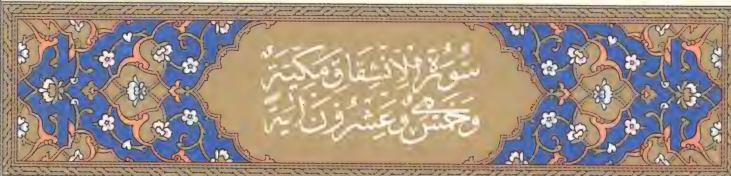 سُورَةُ الْاِنْشِقَاقِ مَكِّيَّةٌ
وَهِيَ خَمْسٌ وَعِشْرُونَ اٰيَةً